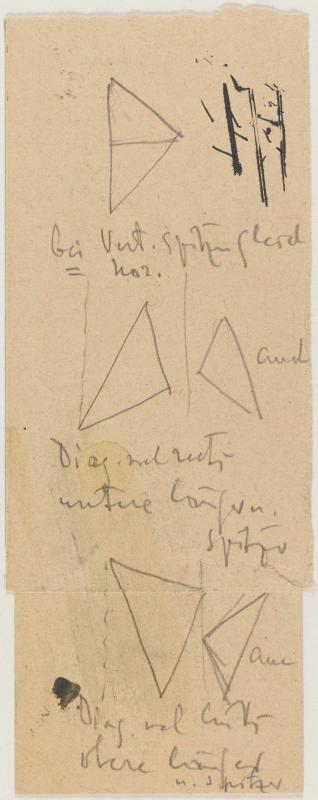 bei Vert. Spitzen gleich
= hor.
auch
Diag. nach rechts
untere länger u.
spitzer
auch
Diag. nach links
obere länger
u. spitzer